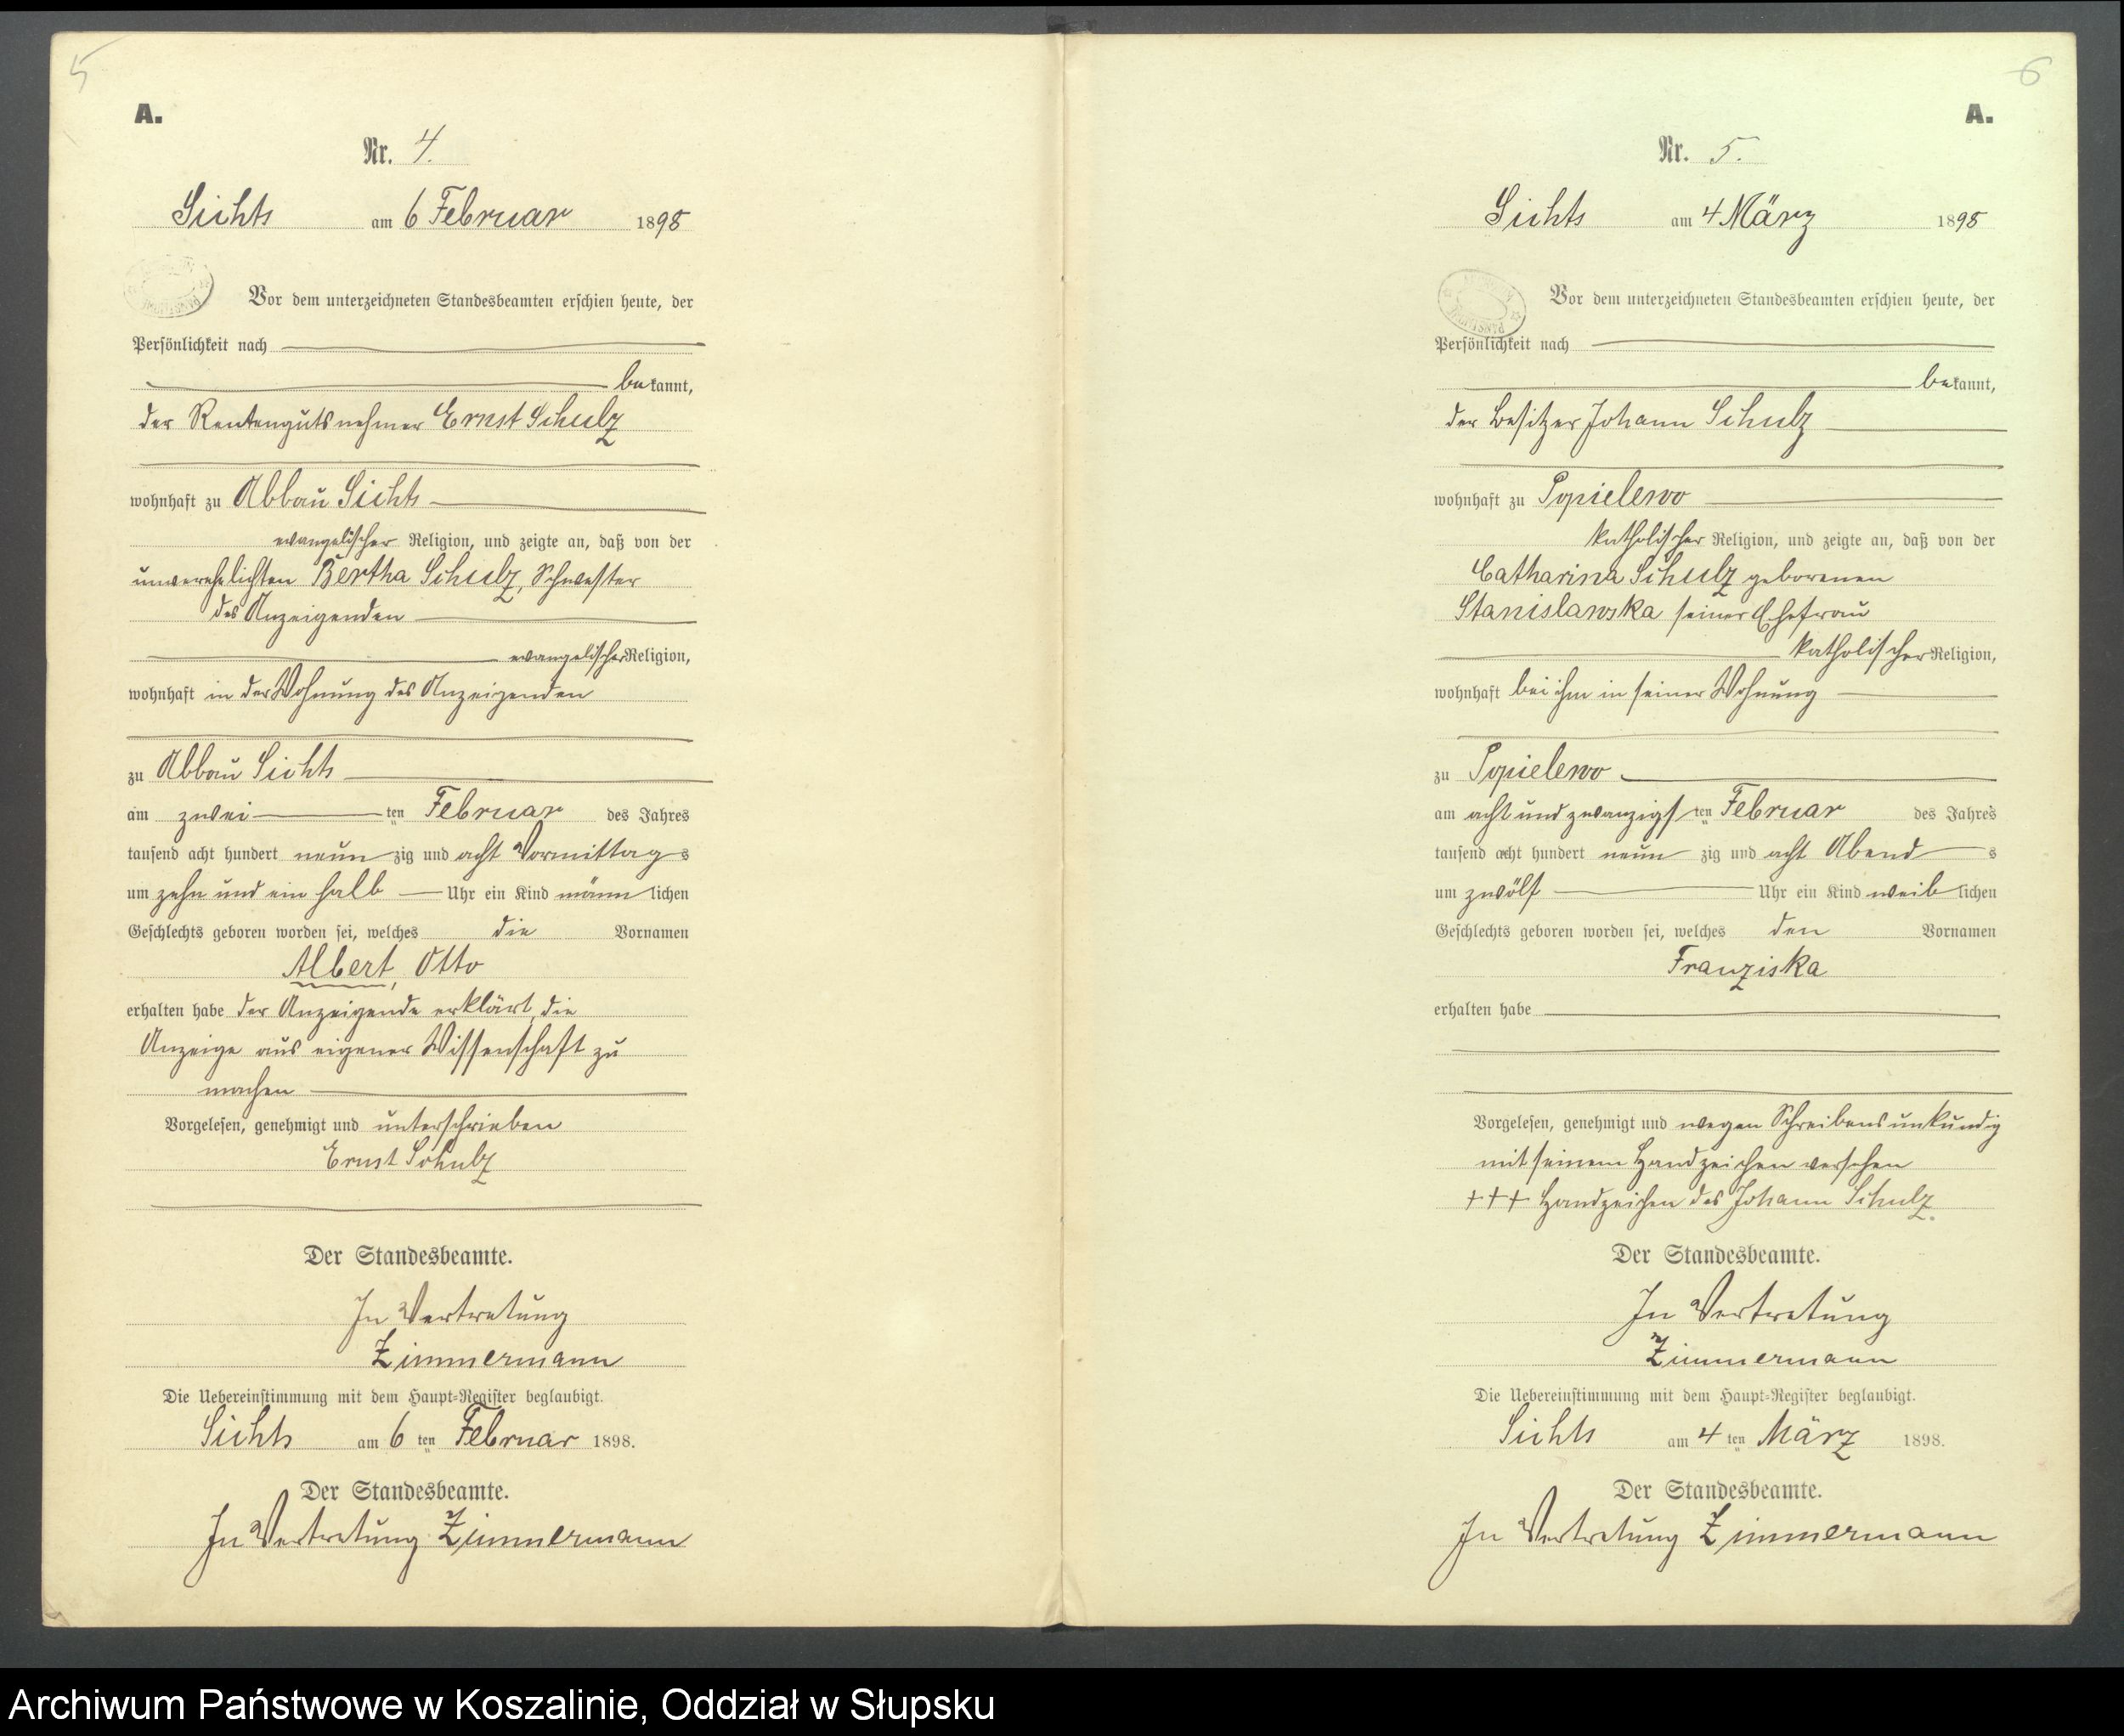 5
A.
Nr. 4.
Sichts am 6 Februar 1898
Vor dem unterzeichneten Standesbeamten erschien heute, der
Persönlichkeit nach
bekannt,
der Rentengutsnehmer Ernst Schulz
wohnhaft zu Abbau Sichts
evangelischer Religion, und zeigte an, daß von der
unverehelichten Bertha Schulz, Schwester
des Anzeigenden
evangelischer Religion,
wohnhaft in der Wohnung des Anzeigenden
zu Abbau Sichts
am zwei ten Februar des Jahres
tausend acht hundert neun zig und acht Vormittags
um zehn und ein halb Uhr ein Kind männlichen
Geschlechts geboren worden sei, welches die Vornamen
Albert, Otto
erhalten habe der Anzeigende erklärt, die
Anzeige aus eigener Wissenschaft zu
machen
Vorgelesen, genehmigt und unterschrieben
Ernst Schulz
Der Standesbeamte.
In Vertretung
Zimmermann
Die Uebereinstimmung mit dem Haupt-Register beglaubigt.
Sichts am 6 ten Februar 1898.
Der Standesbeamte.
In Vertretung Zimmermann
6
A.
Nr. 5.
Sichts am 4 März 1898
Vor dem unterzeichneten Standesbeamten erschien heute, der
Persönlichkeit nach
bekannt,
der Besitzer Johann Schulz
wohnhaft zu Popielewo
katholischer Religion, und zeigte an, daß von der
Catharina Schulz geborenen
Stanislawska seiner Ehefrau
katholischer Religion,
wohnhaft bei ihm in seiner Wohnung
zu Popielewo
am acht und zwanzigsten Februar des Jahres
tausend acht hundert neun zig und acht Abends
um zwölf Uhr ein Kind weiblichen
Geschlechts geboren worden sei, welches den Vornamen
Franziska
erhalten habe
Vorgelesen, genehmigt und wegen Schreibensunkundig
mit seinem Handzeichen versehen
+++ Handzeichen des Johann Schulz.
Der Standesbeamte.
In Vertretung
Zimmermann
Die Uebereinstimmung mit dem Haupt-Register beglaubigt.
Sichts am 4 ten März 1898.
Der Standesbeamte.
In Vertretung Zimmermann
Archiwum Państwowe w Koszalinie, Oddział w Słupsku